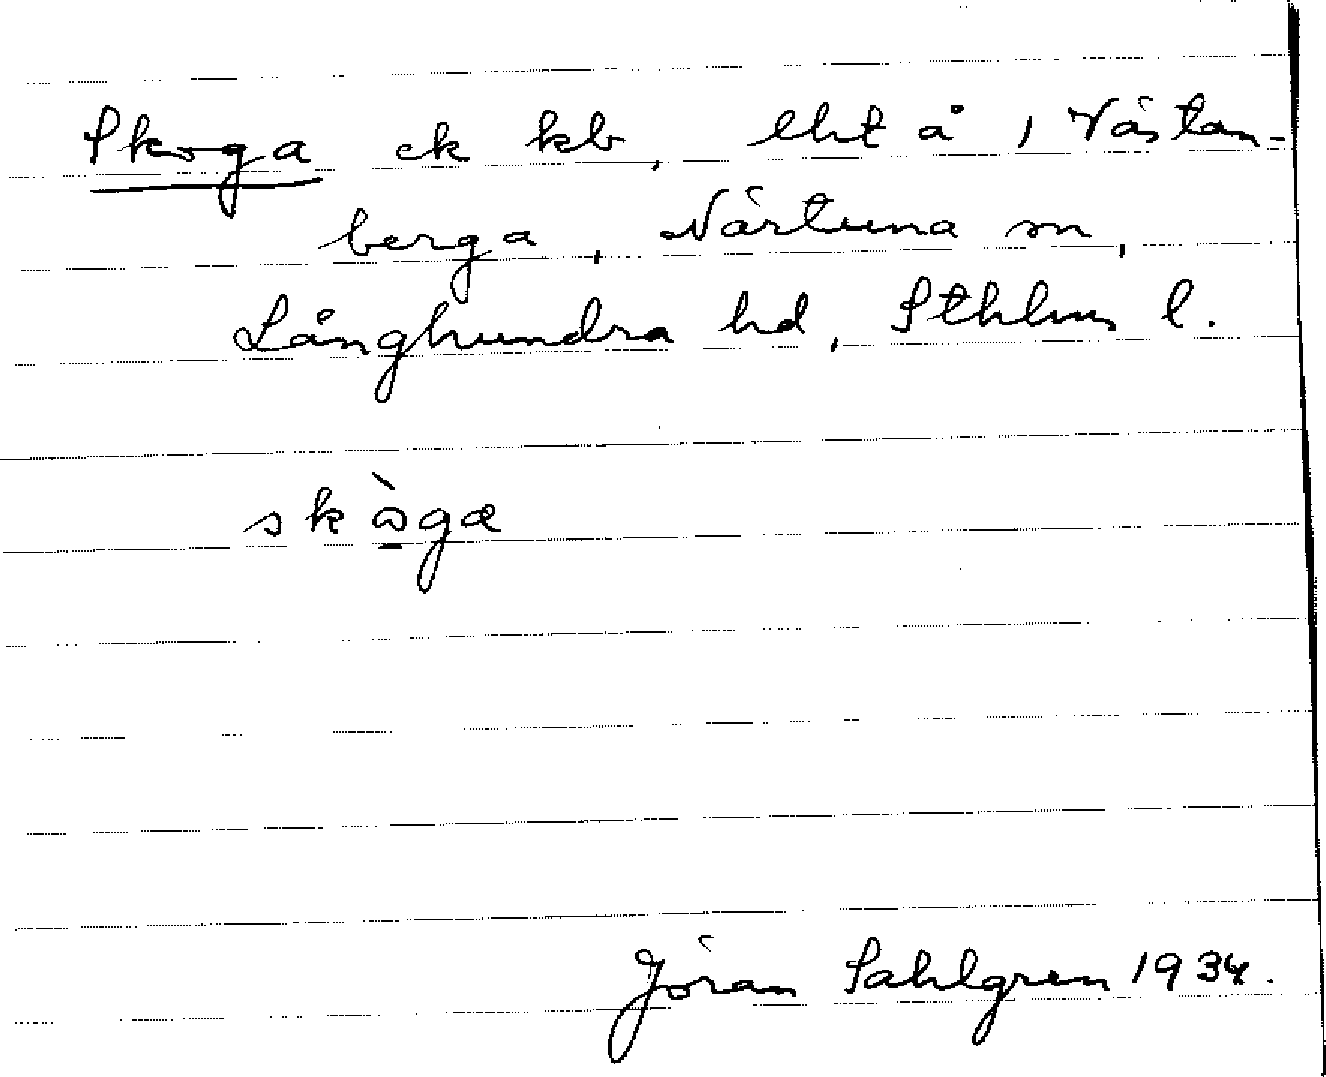 Skoga ek kb, lht å 1 Västan-
berga, Närtuna sn,
Långhundra hd, Sthlms l.
skòga
Jöran Sahlgren 1934.